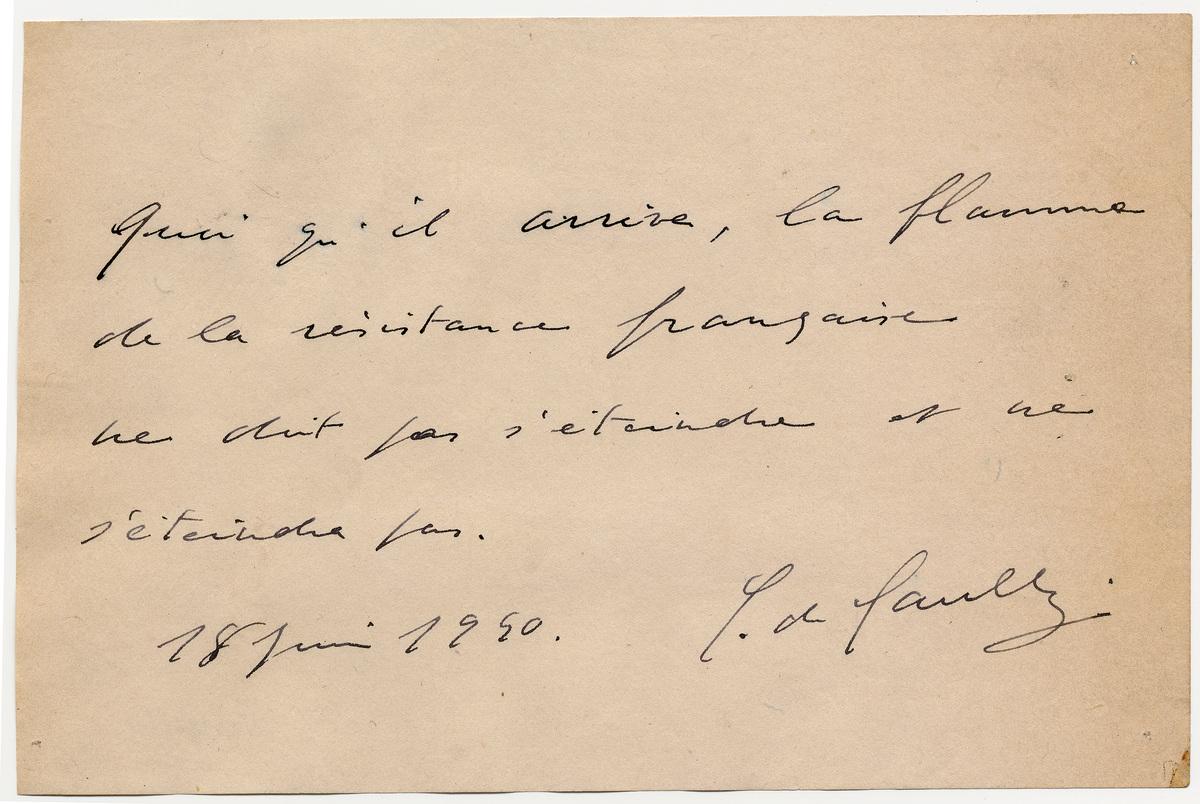 Quoi qu'il arrive, la flamme
de la résistance française
ne doit pas s'éteindre et ne
s'éteindra pas.
18 juin 1940. C. de Gaulle.